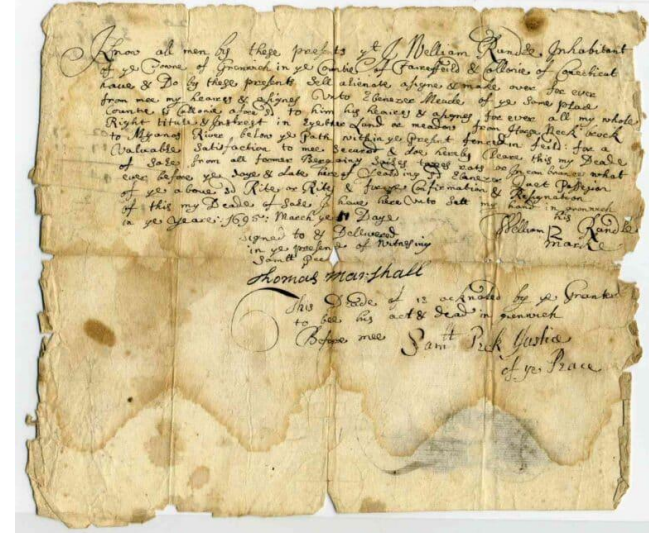 Know all men by these presents yt I William Randle Inhabitant
of ye Towne of Grenwich in ye Countie of Faierfeild & Collonie of Conecticut
have & Do by these presents Sell alienate asigne & make over for ever
from mee my heaires & asignes Unto Ebenezer Meade of ye same place
Countie & Collonie afore sd to him his heaires & asignes for ever all my whole
Right title & Intrest in Eyether Land or meadow from Neck
to Myanos River below ye Path within ye Present fenced in feild: for a
Valuable Satisfaction to mee secured & doe hereby Cleare this my Deade
of Sale from all former Bargains what
ever before ye day & date heareof sd Ebenezer Quiet Possesion
of ye above sd Rite or Rites & Confirmation &
of this my Deade of Sale I have here Unto Sett my hand in grenwich
in ye Yeare: 1695: March ye Daye
his
William Randle
marke
Signed & Dellivered
in ye presence of Witnesing
Samll Peck
Thomas Marshall
This Deade of is acknoled by ye Granter
to bee his act & dead in grenwich
Before mee Samll Peck Justice
of ye Peace